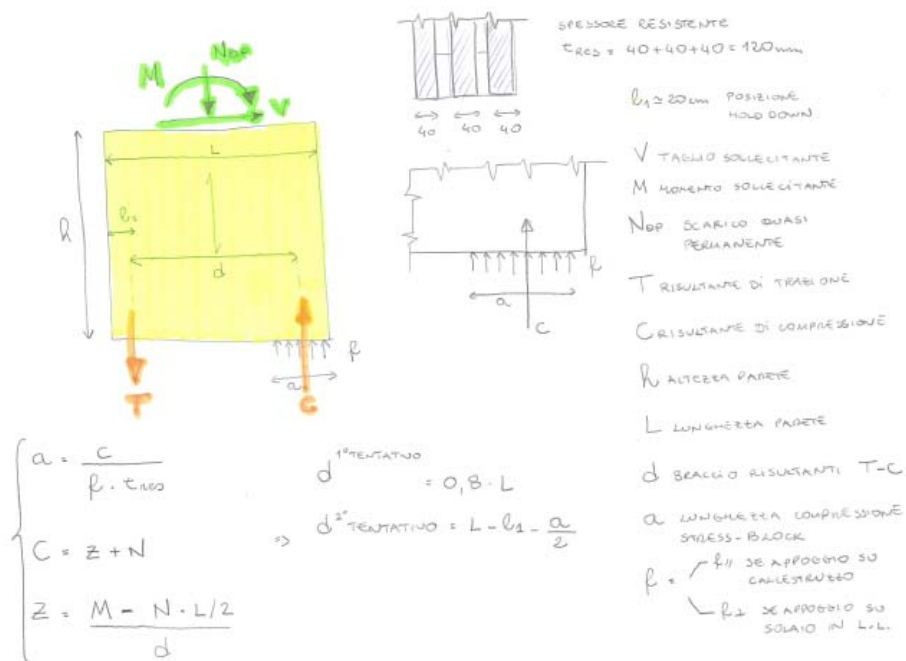 M
N QP
V
L
l1
h
d
f
a
T
C
40 40 40
f
a
C
SPESSORE RESISTENTE
tRES = 40+40+40 = 120 mm
l1 ≃ 20 cm POSIZIONE
HOLD DOWN
V TAGLIO SOLLECITANTE
M MOMENTO SOLLECITANTE
NQP SCARICO QUASI
PERMANENTE
T RISULTANTE DI TRAZIONE
C RISULTANTE DI COMPRESSIONE
h ALTEZZA PARETE
L LUNGHEZZA PARETE
d BRACCIO RISULTANTI T-C
a LUNGHEZZA COMPRESSIONE
STRESS-BLOCK
f = f// SE APPOGGIO SU
CALCESTRUZZO
f⊥ SE APPOGGIO SU
SOLAIO IN L.L.
a = C / (f · tRES)
C = Z + N
Z = (M - N · L/2) / d
d 1° TENTATIVO = 0,8 · L
⇒ d 2° TENTATIVO = L - l1 - a/2